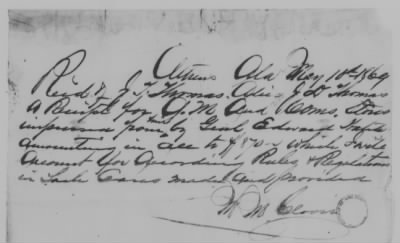 Athens Ala May 10th 1869
Recd of J. T. Thomas. Adm. J D Thomas
A Receipt for Q. M. And Coms. Stores
impressed from by Genl Edward
amounting in all to $870 which I will
account for According Rules & Regulations
in Such Cases made and provided
W M